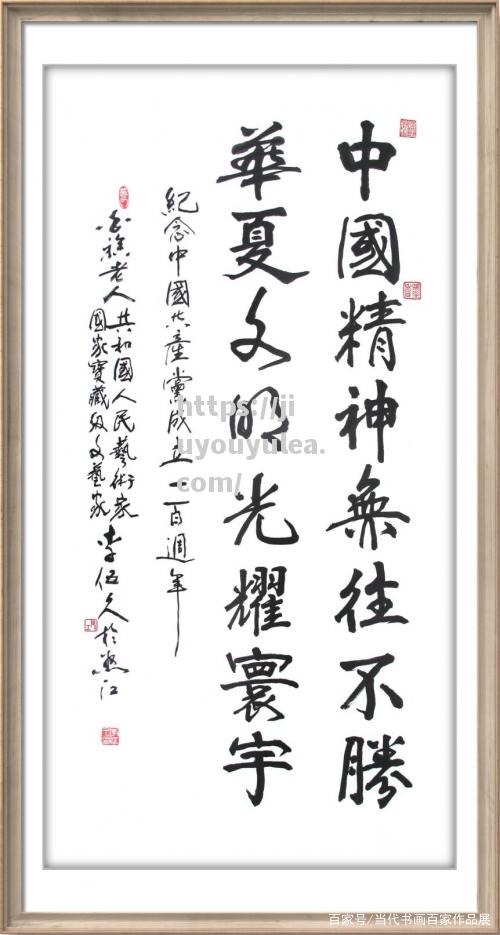 中國精神無往不勝
華夏文明光耀寰宇
紀念中國共產黨成立一百週年
老人
共和國人民藝術家
國家寶藏級文藝家
李伍久於江
https://ji
uyouyulea.
com/
百家号/当代书画百家作品展